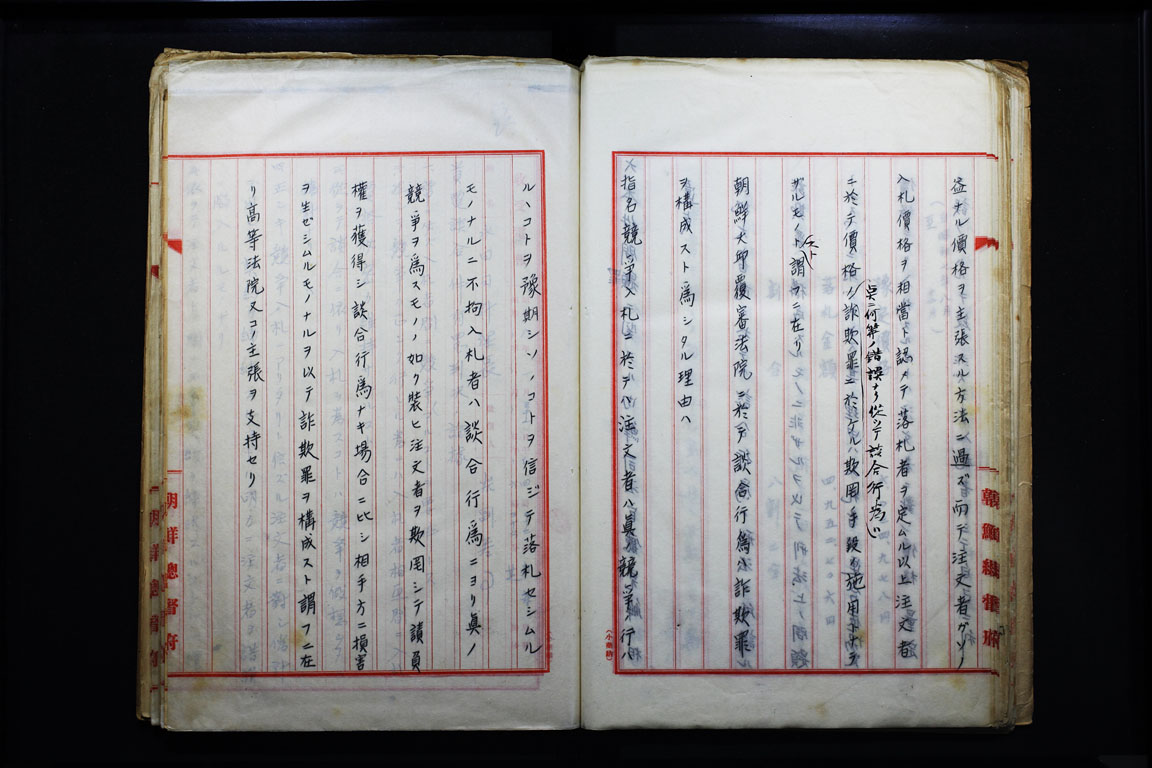 益ナル價格ヲ主張スル方法ニ過ズ而テ注文者ガソノ
入札價格ヲ相當ト認メテ落札者ヲ定ムル以上注文者
ニ於テ價格ノ詐欺罪ニ於ケル欺罔手段ノ施用
點ニ何等ノ錯誤ナク從ッテ談合行爲ハ
ザルモノト謂フニ在リ
朝鮮大邱覆審法院ニ於テ談合行爲ガ詐欺罪
ヲ構成スト爲シタル理由ハ
指名競爭入札ニ於テハ注文者ハ眞ノ競爭行ハ
ルヽコトヲ豫期シソノコトヲ信ジテ落札セシムル
モノナルニ不拘入札者ハ談合行爲ニヨリ眞ノ
競爭ヲ爲スモノノ如ク裝ヒ注文者ヲ欺罔シテ請負
權ヲ獲得シ談合行爲ナキ場合ニ比シ相手方ニ損害
ヲ生ゼシムルモノナルヲ以テ詐欺罪ヲ構成スト謂フニ在
リ高等法院又コノ主張ヲ支持セリ
朝鮮總督府